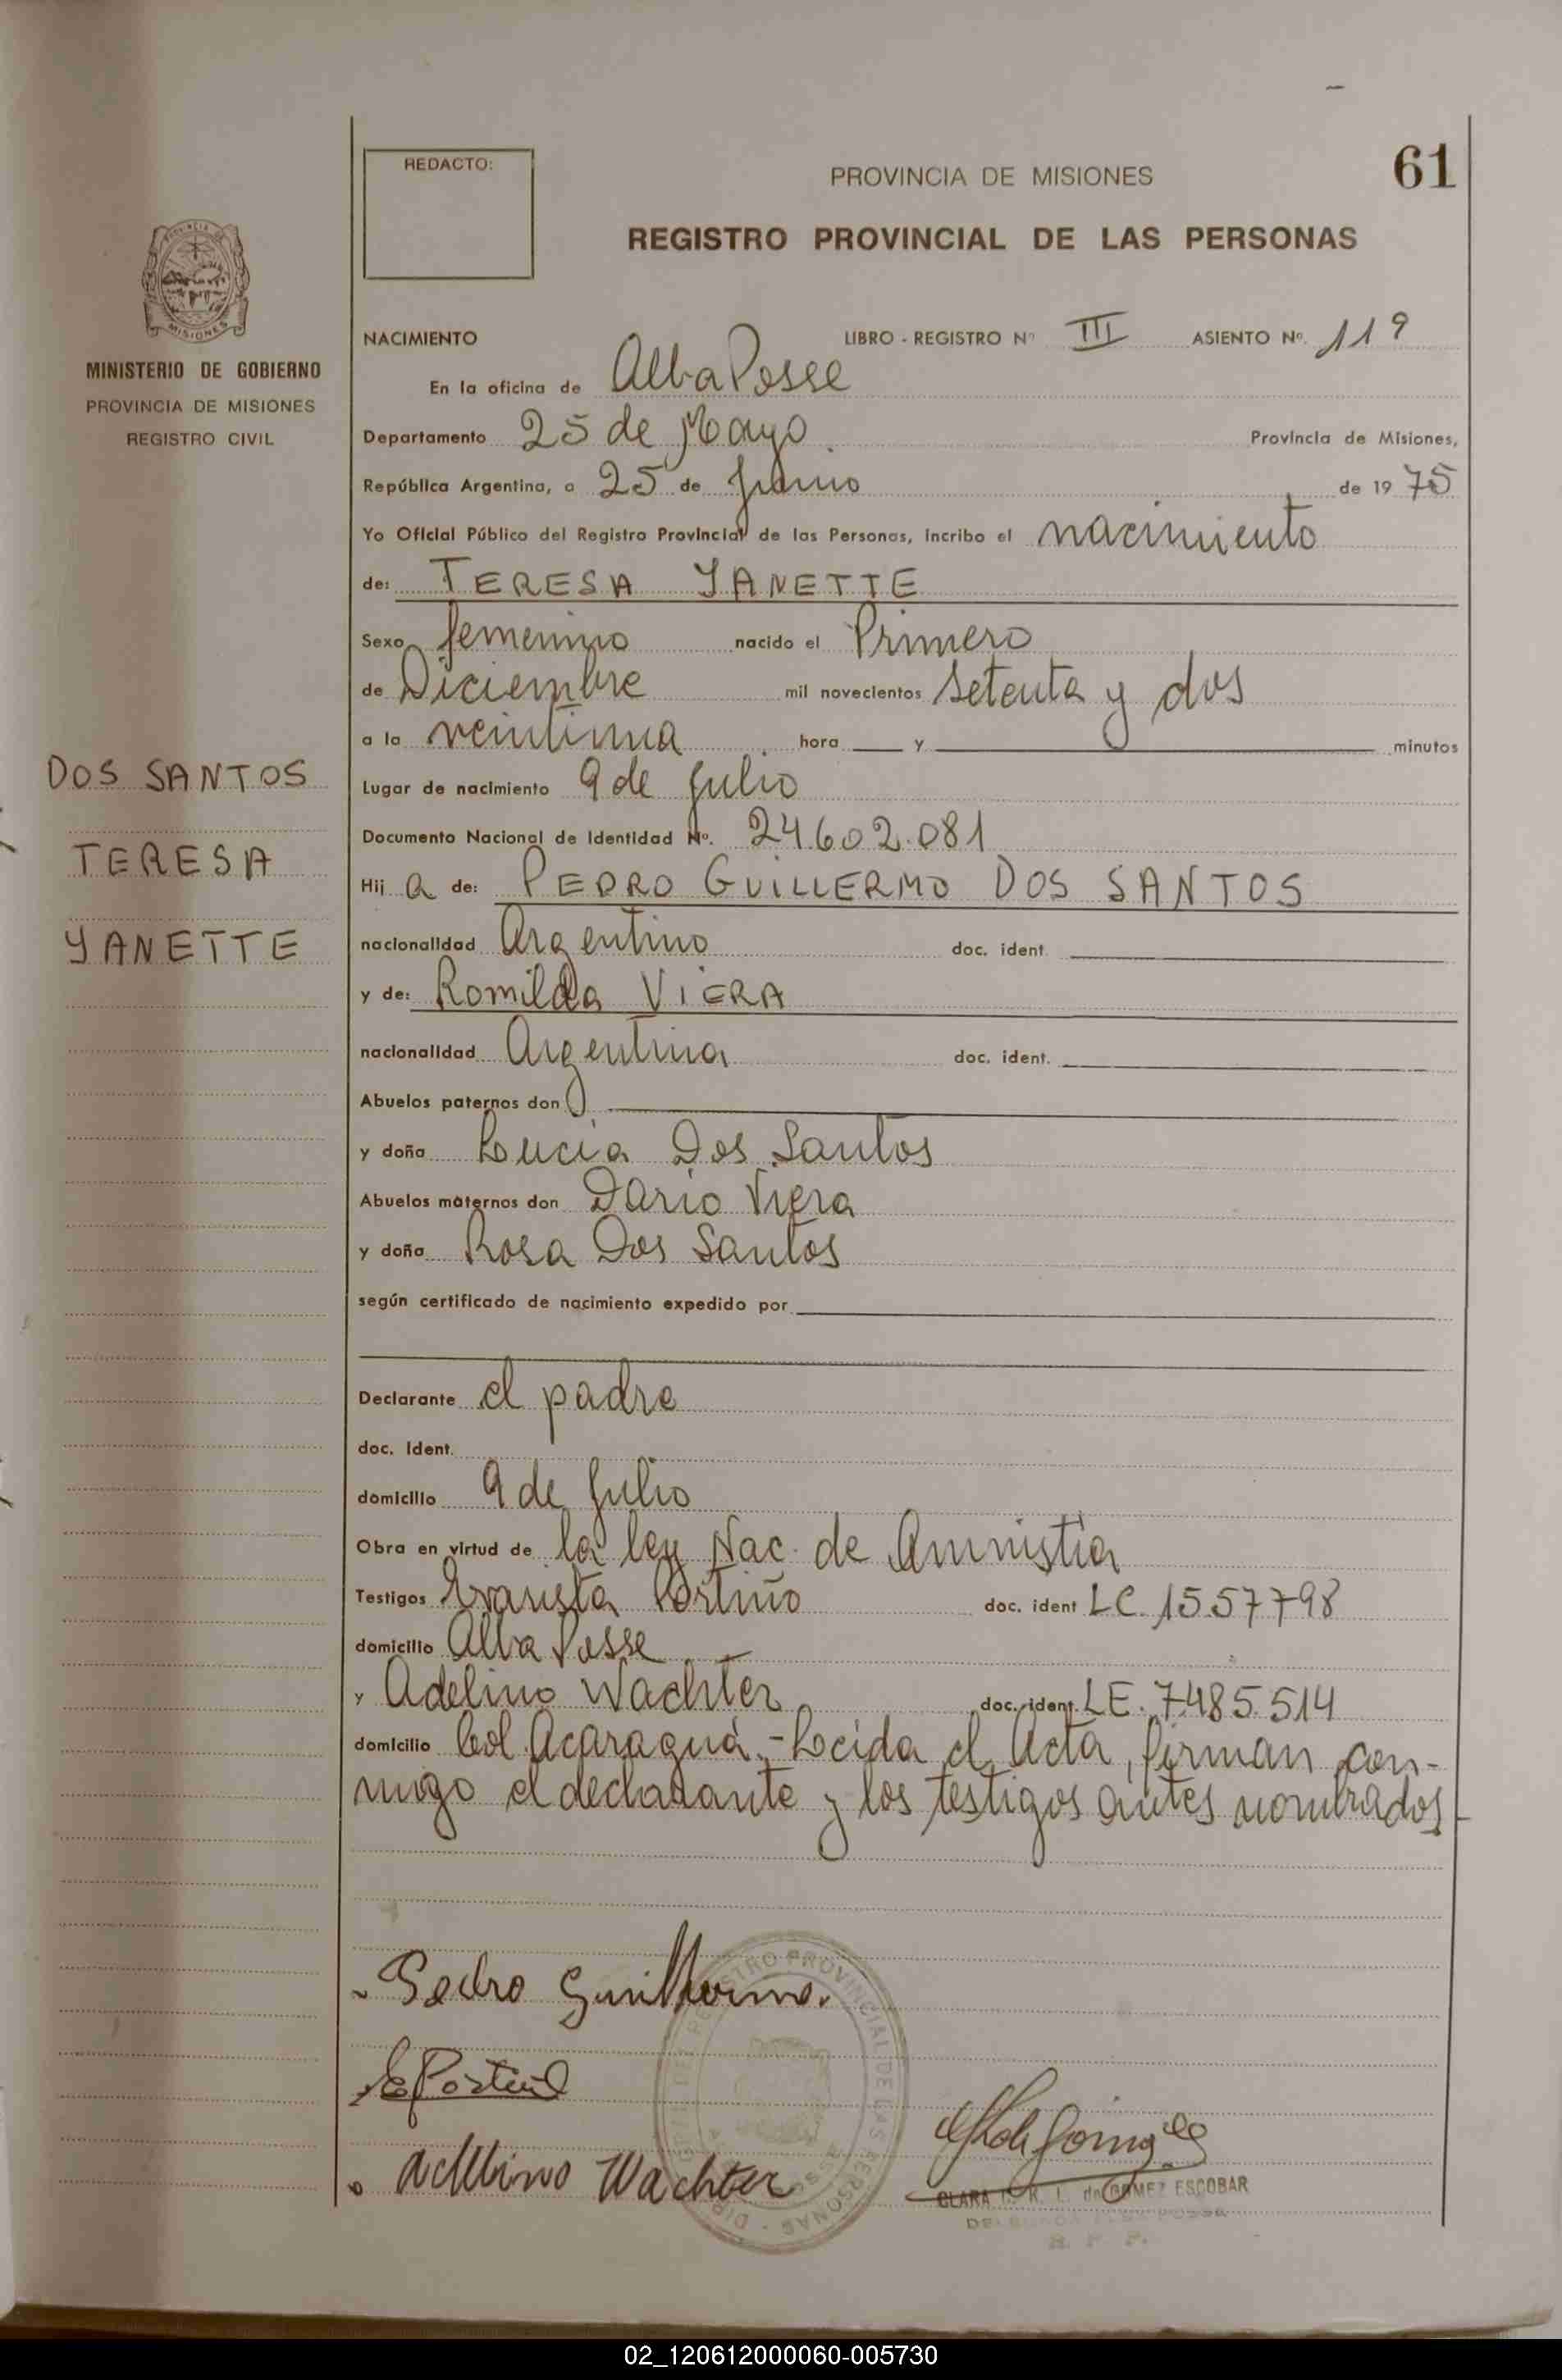 61
REDACTO:
PROVINCIA DE MISIONES
REGISTRO PROVINCIAL DE LAS PERSONAS
MISIONES
MINISTERIO DE GOBIERNO
PROVINCIA DE MISIONES
REGISTRO CIVIL
NACIMIENTO LIBRO - REGISTRO Nº III ASIENTO Nº. 119
En la oficina de Alba Posse
Departamento 25 de Mayo Provincia de Misiones,
República Argentina, a 25 de Junio de 1975
Yo Oficial Público del Registro Provincial de las Personas, inscribo el nacimiento
de: TERESA YANETTE
Sexo femenino nacido el Primero
de Diciembre mil novecientos setenta y dos
a la veintiuna hora y minutos
DOS SANTOS
TERESA
YANETTE
Lugar de nacimiento 9 de Julio
Documento Nacional de Identidad Nº. 24.602.081
Hij a de: PEDRO GUILLERMO DOS SANTOS
nacionalidad Argentino doc. ident.
y de: Romilda VIERA
nacionalidad Argentina doc. ident.
Abuelos paternos don
y doña Lucia Dos Santos
Abuelos maternos don Dario Viera
y doña Rosa Dos Santos
según certificado de nacimiento expedido por
Declarante el padre
doc. ident.
domicilio 9 de Julio
Obra en virtud de la ley Nac. de Amnistia
Testigos Evarista Portiño doc. ident LC. 1557798
domicilio Alba Posse
y Adelino Wachter doc. ident. LE. 7.485.514
domicilio Col. Acaraguá.- Leida el Acta, firman con-
migo el declarante y los testigos antes nombrados
Pedro Guillermo.
E Portiño
Adelino Wachter
CLARA R. L. de GOMEZ ESCOBAR
R. P. P.
02_120612000060-005730